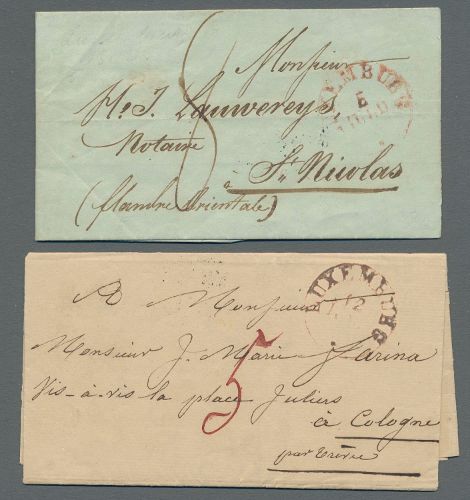 Monsieur
J. Lauwereys
Notaire
à
St. Nicolas
(flandre orientale)
5
LUXEMBURG
A Monsieur
Monsieur J. Marie Farina
Vis-à-vis la place Juliers
à Cologne
par Trèves
5
LUXEMBURG
12